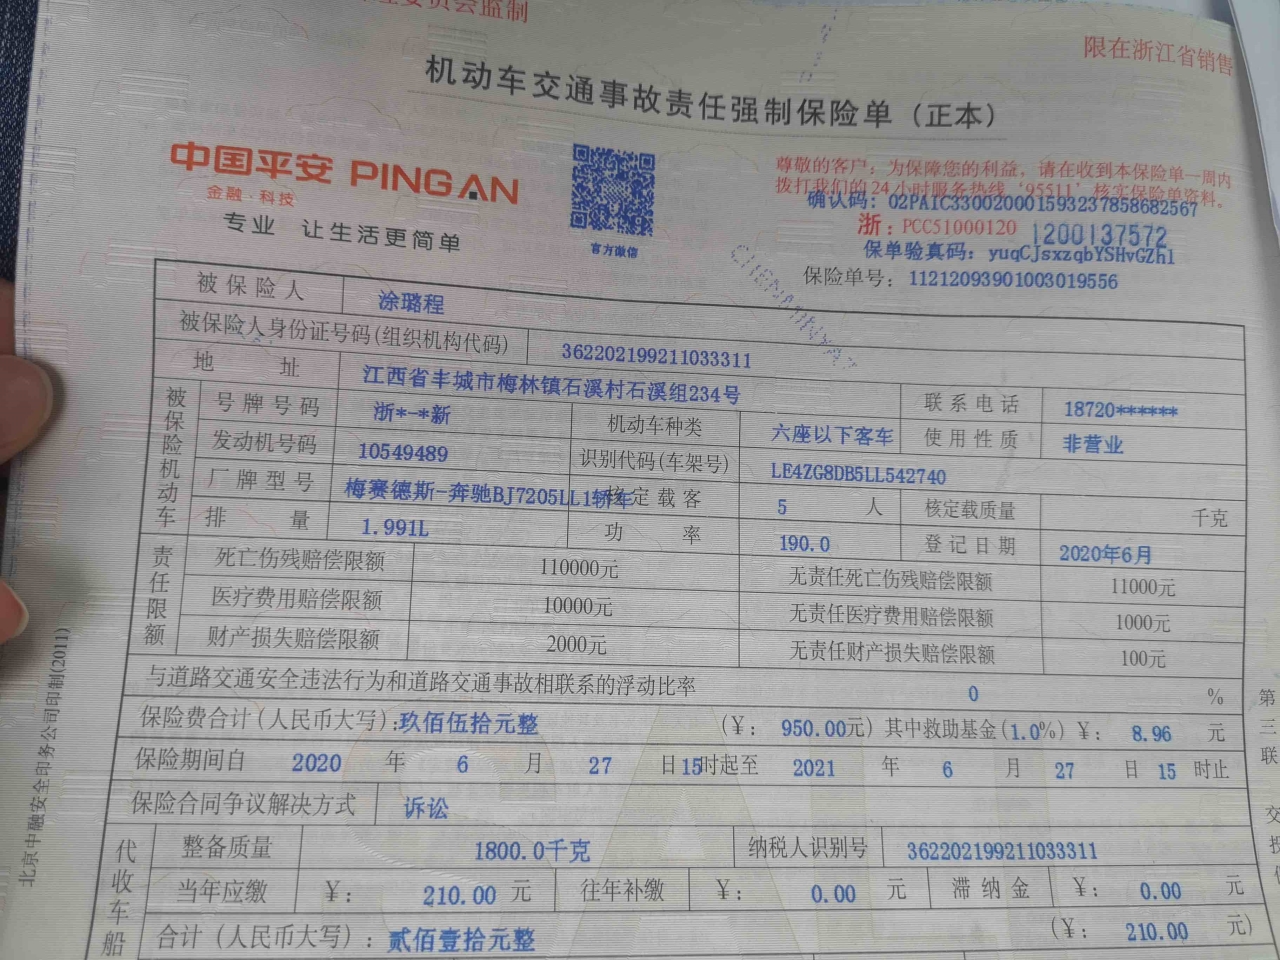 委员会监制
限在浙江省销售
机动车交通事故责任强制保险单（正本）
中国平安 PING AN
金融·科技
专业 让生活更简单
官方微信
尊敬的客户：为保障您的利益，请在收到本保险单一周内
拨打我们的24小时服务热线'95511'核实保险单资料。
确认码：02PAIC330020001593237858682567
浙：PCC51000120 1200137572
保单验真码：yuqCJsxzqbYSHvGZh1
保险单号：11212093901003019556
被保险人 涂璐程
被保险人身份证号码(组织机构代码) 362202199211033311
地 址 江西省丰城市梅林镇石溪村石溪组234号 联系电话 18720******
被保险机动车
号牌号码 浙*-*新 机动车种类 六座以下客车 使用性质 非营业
发动机号码 10549489 识别代码(车架号) LE4ZG8DB5LL542740
厂牌型号 梅赛德斯-奔驰BJ7205LL1轿车 核定载客 5 人 核定载质量 千克
排 量 1.991L 功 率 190.0 登记日期 2020年6月
责任限额
死亡伤残赔偿限额 110000元 无责任死亡伤残赔偿限额 11000元
医疗费用赔偿限额 10000元 无责任医疗费用赔偿限额 1000元
财产损失赔偿限额 2000元 无责任财产损失赔偿限额 100元
与道路交通安全违法行为和道路交通事故相联系的浮动比率 0 %
保险费合计(人民币大写):玖佰伍拾元整 (¥：950.00元) 其中救助基金(1.0%) ¥：8.96 元
保险期间自 2020 年 6 月 27 日15时起至 2021 年 6 月 27 日 15 时止
保险合同争议解决方式 诉讼
代收车船
整备质量 1800.0千克 纳税人识别号 362202199211033311
当年应缴 ¥：210.00 元 往年补缴 ¥：0.00 元 滞纳金 ¥：0.00 元
合计（人民币大写）：贰佰壹拾元整 (¥：210.00 元)
北京中融安全印务公司印制(2011)
第三联
交